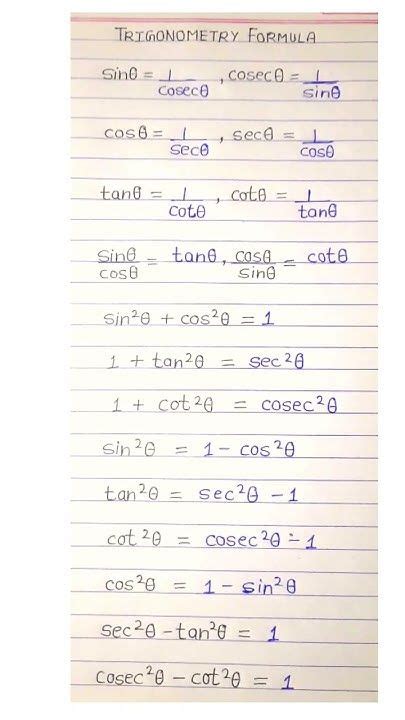 TRIGONOMETRY FORMULA
sinθ = 1/cosecθ , cosecθ = 1/sinθ
cosθ = 1/secθ , secθ = 1/cosθ
tanθ = 1/cotθ , cotθ = 1/tanθ
sinθ/cosθ = tanθ, cosθ/sinθ = cotθ
sin²θ + cos²θ = 1
1 + tan²θ = sec²θ
1 + cot²θ = cosec²θ
sin²θ = 1 - cos²θ
tan²θ = sec²θ - 1
cot²θ = cosec²θ - 1
cos²θ = 1 - sin²θ
sec²θ - tan²θ = 1
cosec²θ - cot²θ = 1